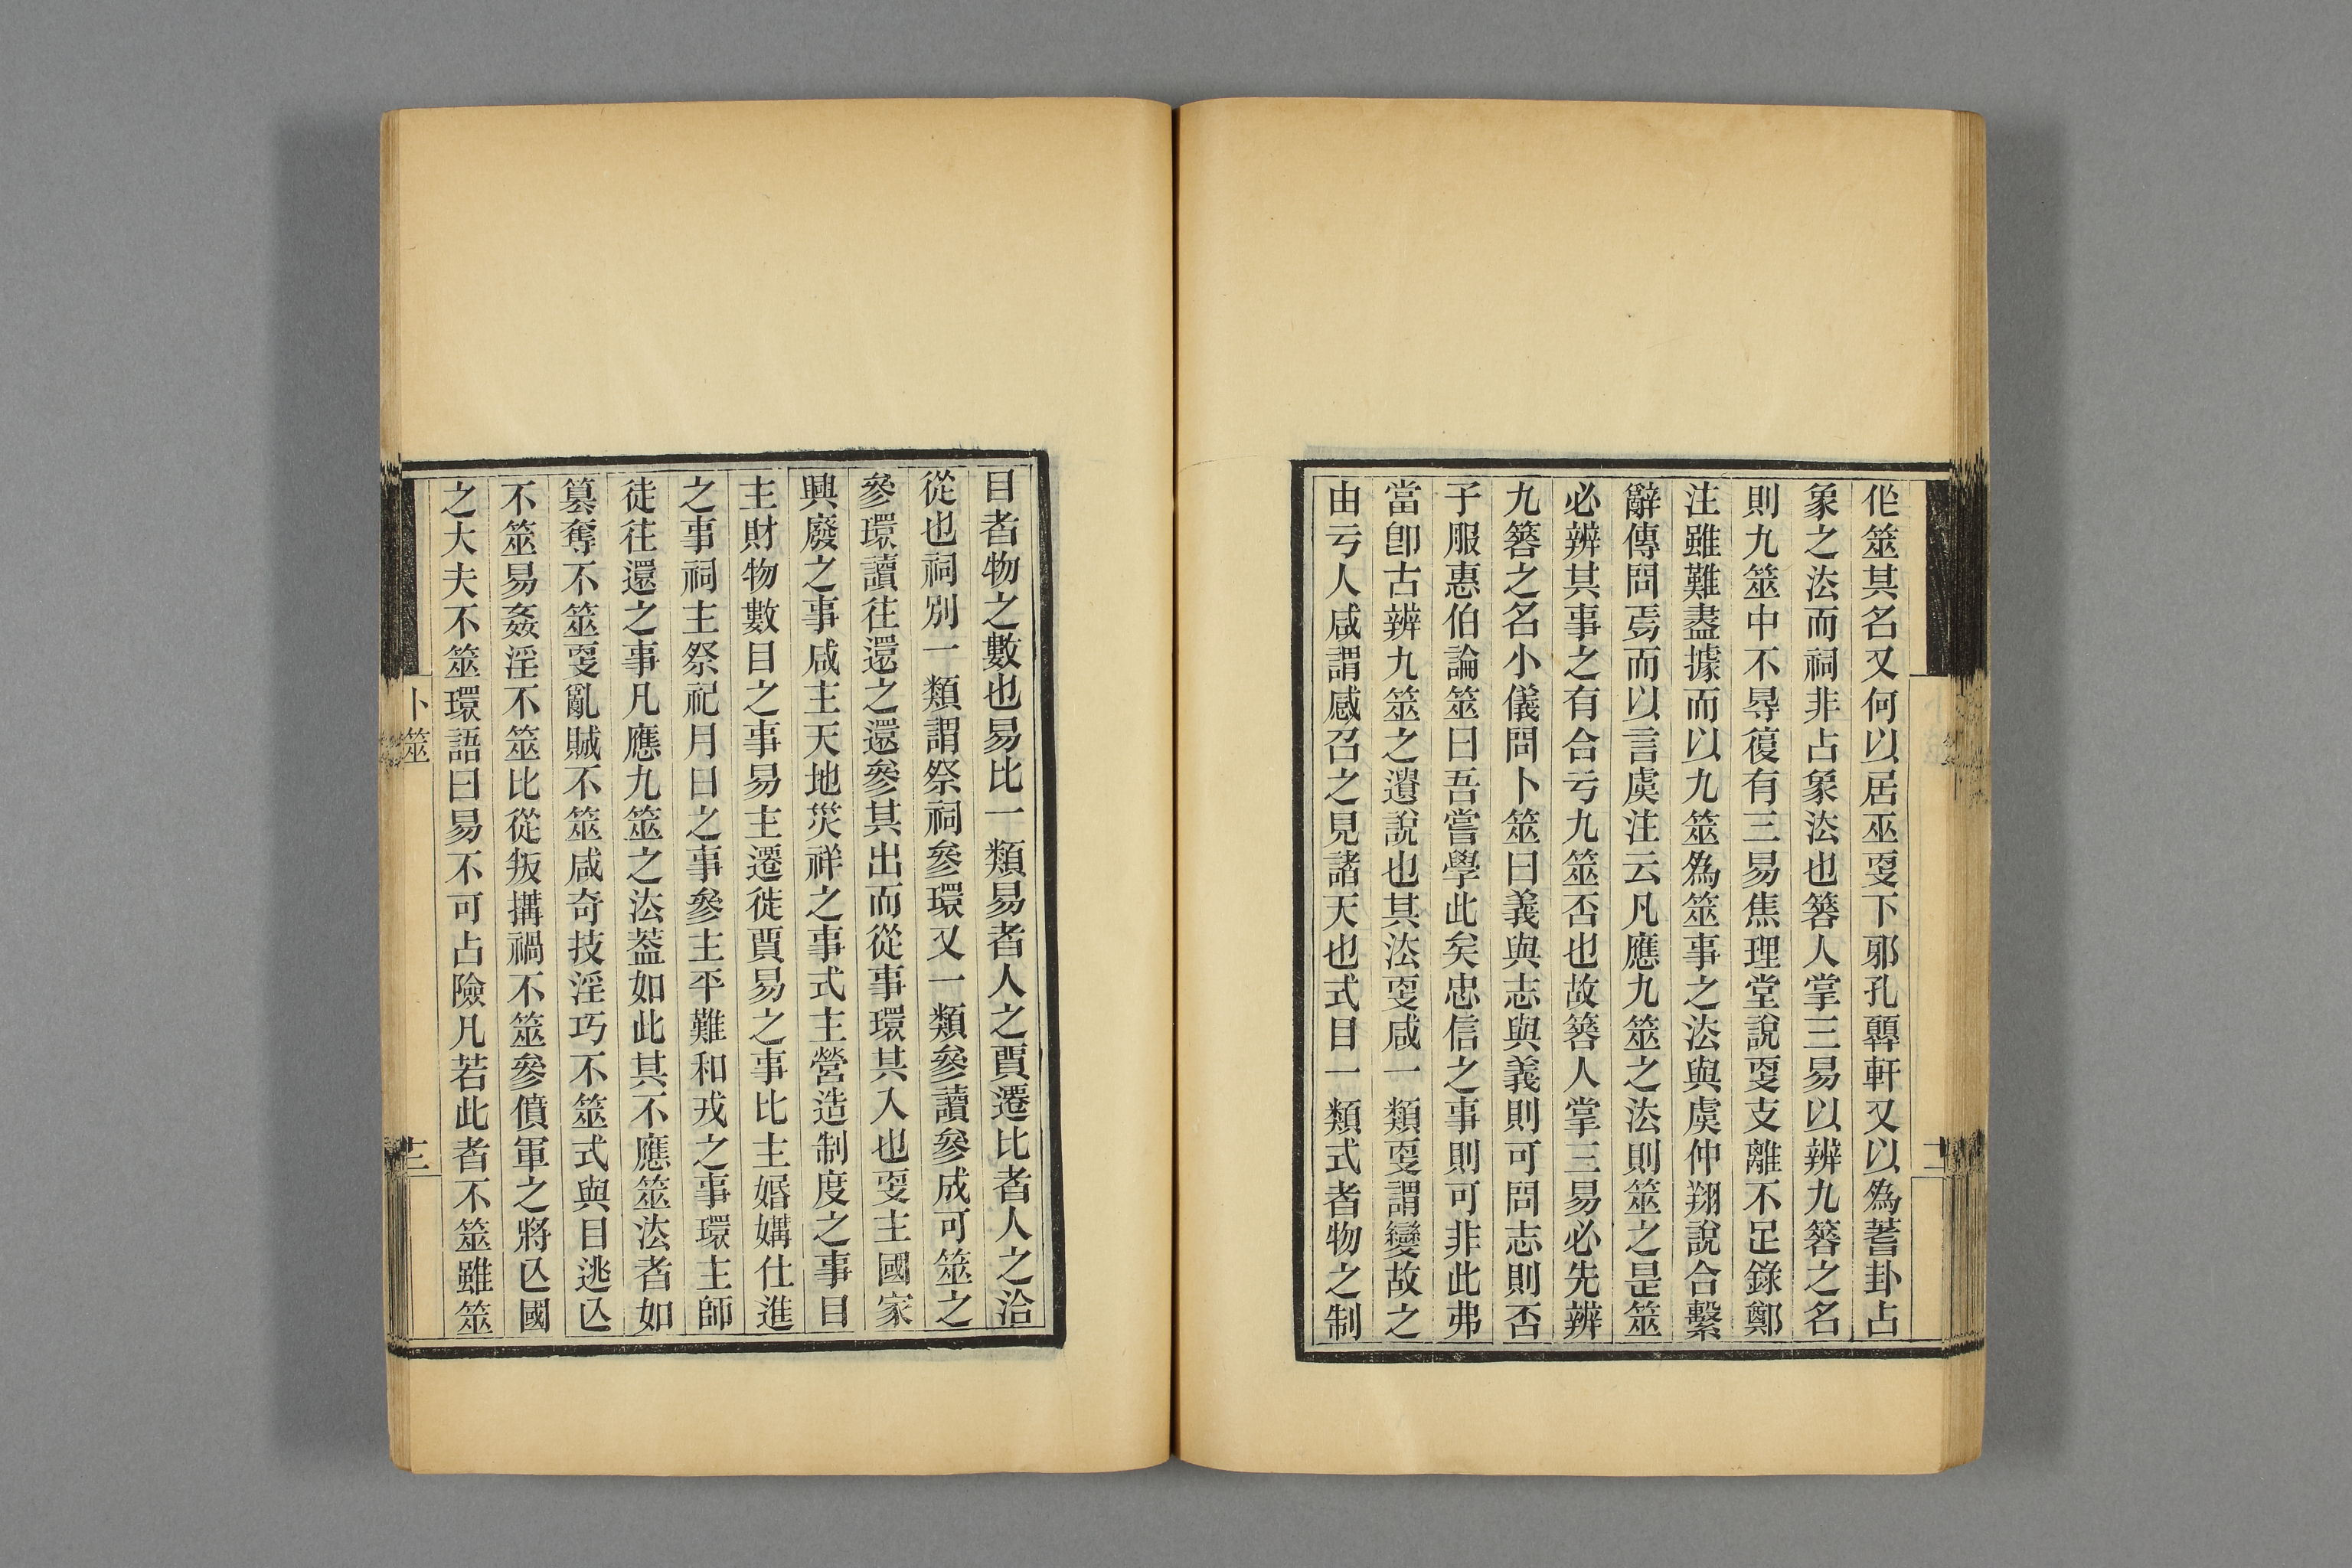 作筮其名又何以居巫㪅下邪孔顨軒又以爲蓍卦占
象之法而祠非占象法也簭人掌三易以辨九簭之名
則九筮中不㝵復有三易焦理堂說㪅支離不足錄鄭
注雖難盡據而以九筮爲筮事之法與虞仲翔說合繫
辭傳問焉而以言虞注云凡應九筮之法則筮之是筮
必辨其事之有合亏九筮否也故簭人掌三易必先辨
九簭之名小儀問卜筮曰義與志與義則可問志則否
子服惠伯論筮曰吾嘗學此矣忠信之事則可非此弗
當卽古辨九筮之遺說也其法㪅咸一類㪅謂變故之
由亏人咸謂感召之見諸天也式目一類式者物之制
目者物之數也易比一類易者人之賈遷比者人之洽
從也祠別一類謂祭祠參環又一類參讀參成可筮之
參環讀往還之還參其出而從事環其入也㪅主國家
興廢之事咸主天地災祥之事式主營造制度之事目
主財物數目之事易主遷徙賈易之事比主婚媾仕進
之事祠主祭祀月日之事參主平難和戎之事環主師
徒往還之事凡應九筮之法葢如此其不應筮法者如
篡奪不筮㪅亂賊不筮咸奇技淫巧不筮式與目逃亾
不筮易姦淫不筮比從叛搆禍不筮參僨軍之將亾國
之大夫不筮環語曰易不可占險凡若此者不筮雖筮
卜筮
十二